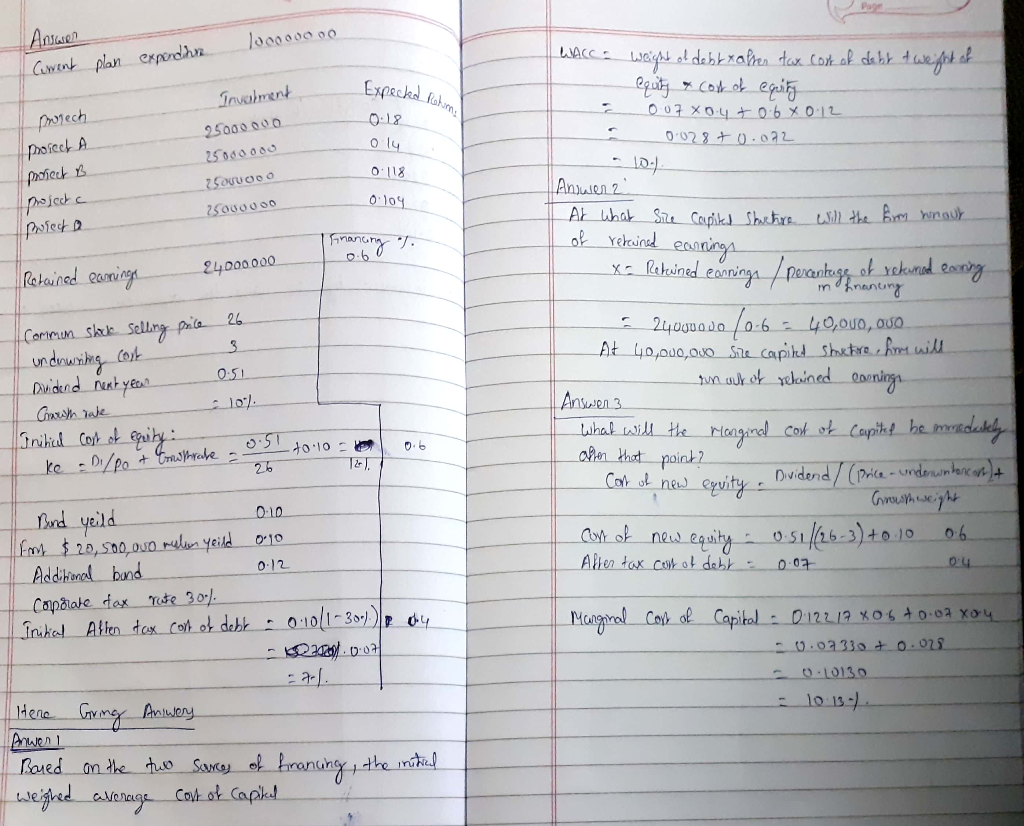 Answer
Current plan expenditure 100000000
Project Investment Expected Returns
Project A 25000000 0.18
Project B 25000000 0.14
Project C 25000000 0.118
Project D 25000000 0.104
Financing %.
Retained earnings 24000000 0.6
Common stock selling price 26
underwriting cost 3
Dividend next year 0.51
Growth rate = 10%.
Initial cost of equity:
ke = D1/P0 + Growthrate = 0.51/26 + 0.10 = 12%. 0.6
Bond yeild 0.10
First $ 20,500,000 yeild 0.10
Additional bond 0.12
Corporate tax rate 30%.
Initial After tax cost of debt = 0.10(1-30%.) 0.4
= 0.07
= 7%.
Here Giving Answers
Answer 1
Based on the two sources of financing, the initial
weighed average cost of capital
WACC = weight of debt x after tax cost of debt + weight of
equity x cost of equity
= 0.07 x 0.4 + 0.6 x 0.12
= 0.028 + 0.072
= 10%.
Answer 2
At what size capital structure will the firm runout
of retained earnings
x = Retained earnings / percentage of retained earning
in financing
= 24000000/0.6 = 40,000,000
At 40,000,000 size capital structure, firm will
run out of retained earnings
Answer 3
What will the Marginal cost of capital be immediately
after that point?
Cost of new equity = Dividend / (Price - underwritercost) +
Growth weight
Cost of new equity = 0.51/(26-3) + 0.10 0.6
After tax cost of debt = 0.07 0.4
Marginal Cost of Capital = 0.12217 x 0.6 + 0.07 x 0.4
= 0.07330 + 0.028
= 0.10130
= 10.13%.